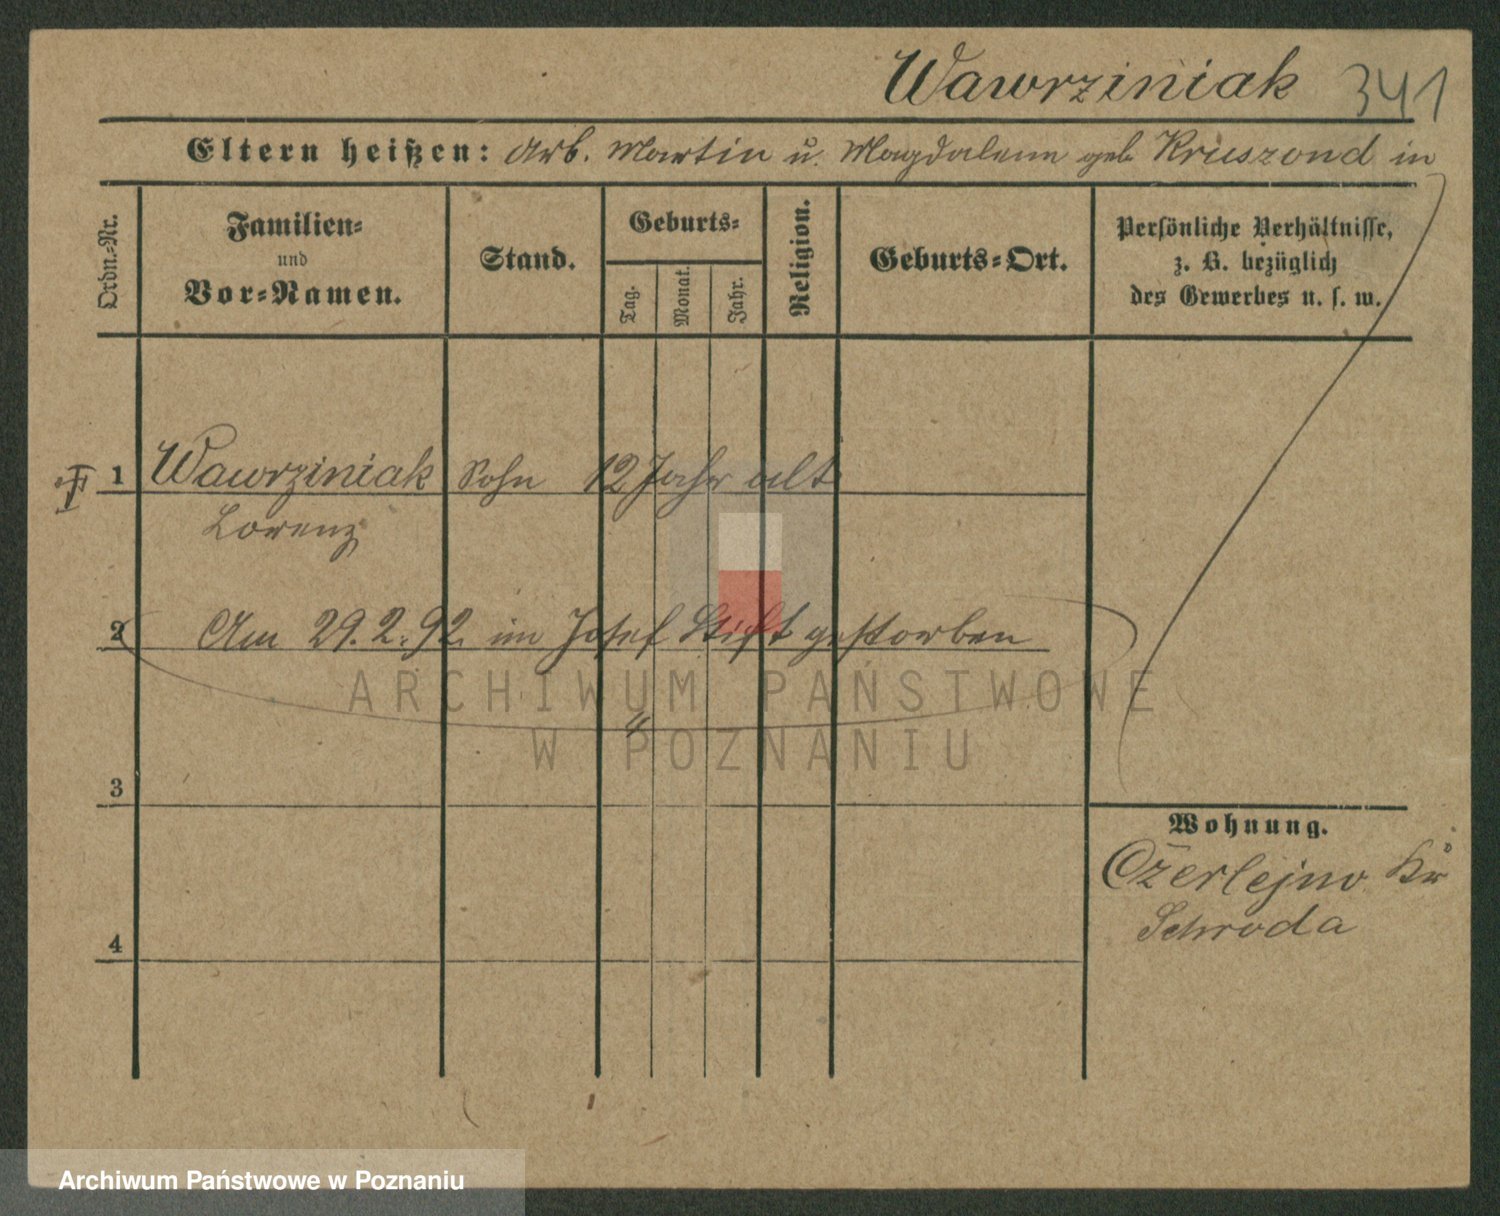 Wawrziniak 341
Eltern heißen: Arb. Martin u. Magdalena geb. Kruszona in
Ordn.-Nr.
Familien-
und
Vor-Namen.
Stand.
Geburts-
Tag.
Monat.
Jahr.
Religion.
Geburts-Ort.
Persönliche Verhältnisse,
z. B. bezüglich
des Gewerbes u. s. w.
1 Wawrziniak Sohn 12 Jahr alt
Lorenz
2 Am 29.2.92. im Josef Stift gestorben
ARCHIWUM PAŃSTWOWE
W POZNANIU
3
Wohnung.
Czerlejno Kr
Schroda
4
Archiwum Państwowe w Poznaniu